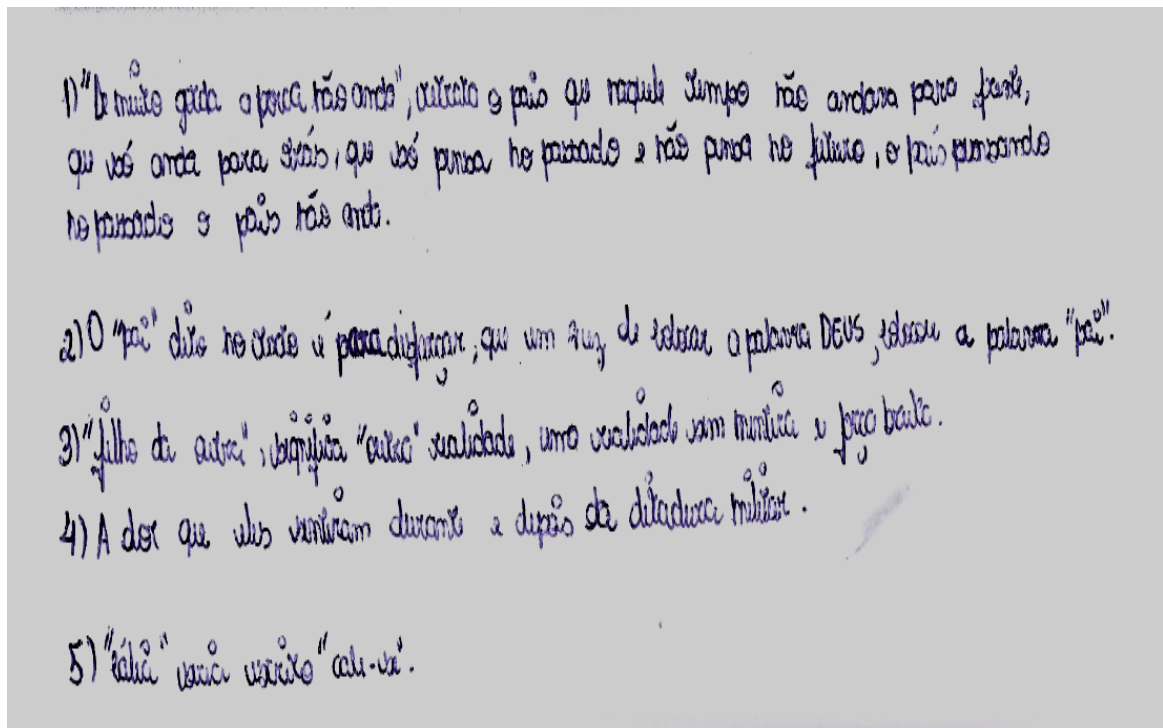 1) "De muito gorda a porca não anda", retrata o país que naquele tempo não andava para frente,
que só anda para trás, que só pensa no passado e não pensa no futuro, o país pensando
no passado o país não anda.
2) O "pai" dito no texto é para disfarçar, que em vez de colocar a palavra DEUS, colocou a palavra "pai".
3) "filho da outra", significa "outra" realidade, uma realidade sem mentira e força bruta.
4) A dor que eles sentiram durante e depois da ditadura militar.
5) "cálice" seria escrito "cale-se".